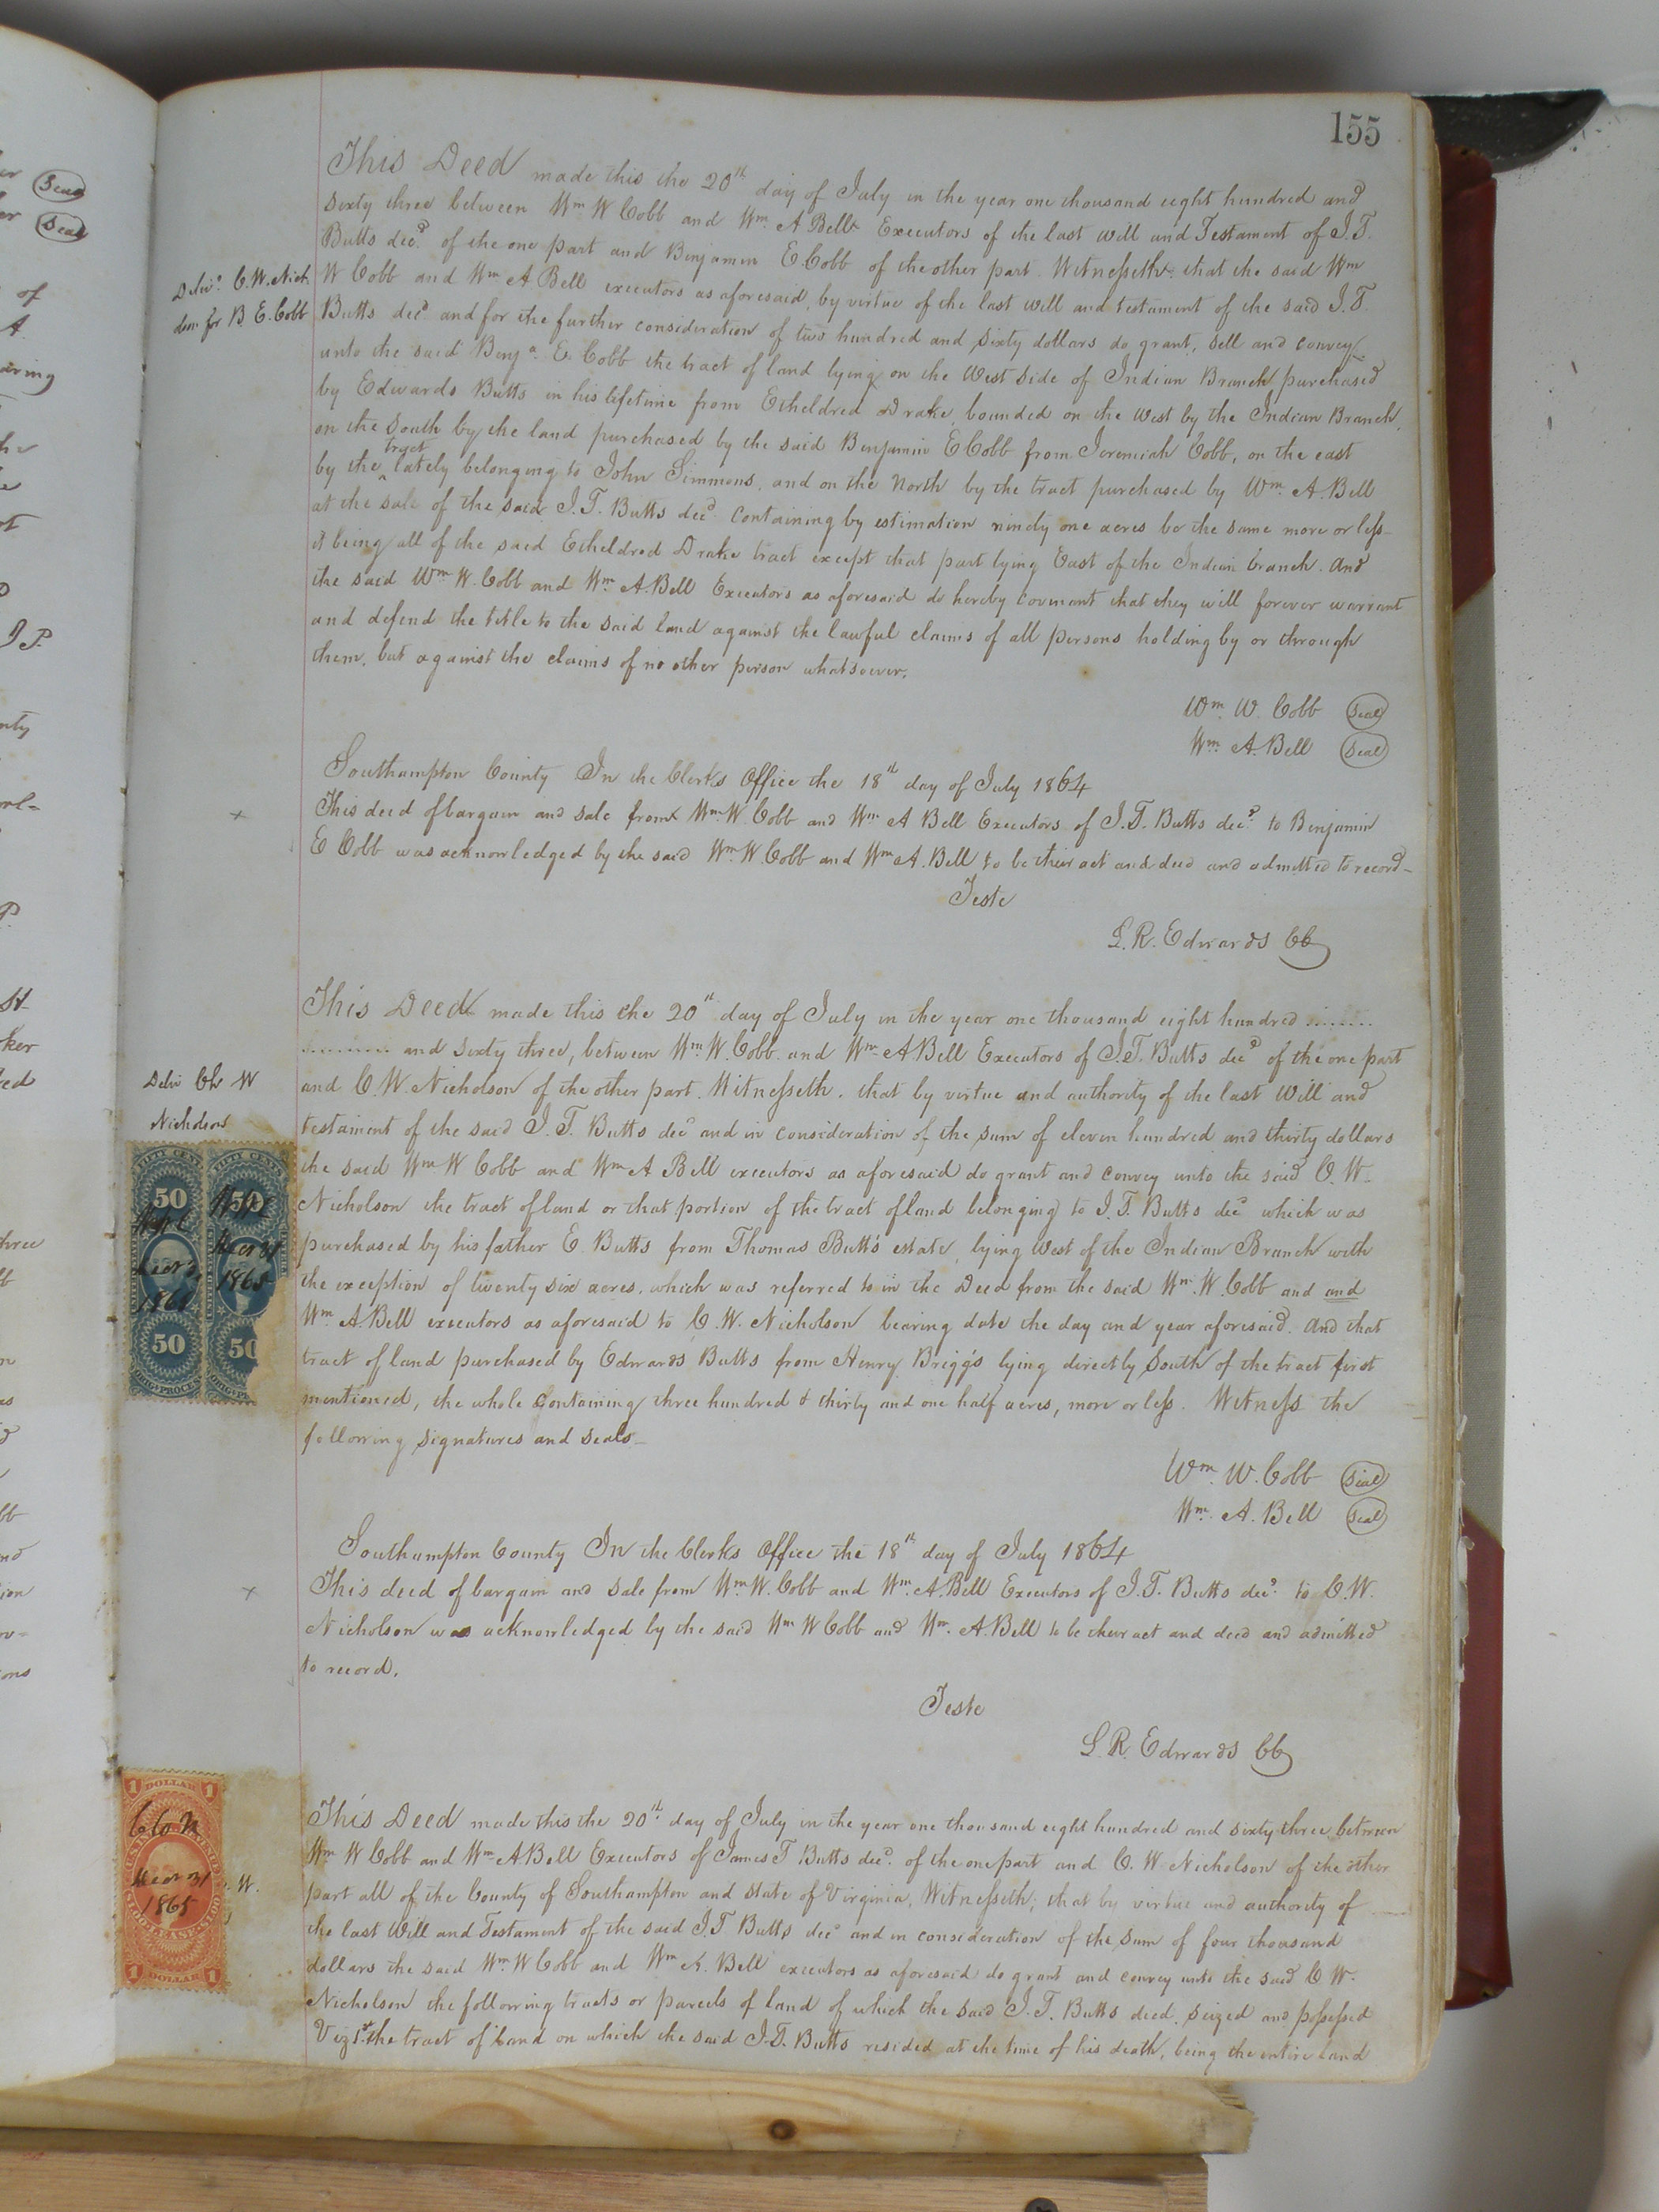 155
This Deed made this the 20th day of July in the year one thousand eight hundred and
sixty three between Wm W Cobb and Wm. A Bell Executors of the last will and Testament of J.T.
Butts decd. of the one part and Benjamin E. Cobb of the other part. Witnesseth: that the said Wm
Deliv.d C.W. Nich
W Cobb and Wm A Bell executors as aforesaid, by virtue of the last will and testament of the said J.T.
olson for B. E. Cobb
Butts decd and for the further consideration of two hundred and sixty dollars do grant, sell and convey
unto the said Benja. E. Cobb the tract of land lying on the West side of Indian Branch purchased
by Edwards Butts in his lifetime from Etheldred Drake, bounded on the West by the Indian Branch,
on the South by the land purchased by the said Benjamin E Cobb from Jeremiah Cobb, on the east
by the ^tract lately belonging to John Simmons, and on the North by the tract purchased by Wm. A. Bell
at the sale of the said J.T. Butts decd. Containing by estimation ninety one acres be the same more or less
it being all of the said Etheldred Drake tract except that part lying East of the Indian branch. And
the said Wm W. Cobb and Wm. A. Bell Executors as aforesaid do hereby covenant that they will forever warrant
and defend the title to the said land against the lawful claims of all persons holding by or through
them, but against the claims of no other person whatsoever.
Wm. W. Cobb Seal
Wm. A. Bell Seal
Southampton County In the Clerk's Office the 18th day of July 1864
This deed of bargain and sale from Wm. W. Cobb and Wm A Bell Executors of J.T. Butts decd. to Benjamin
E Cobb was acknowledged by the said Wm. W. Cobb and Wm A. Bell to be their act and deed and admitted to record-
Teste
L.R. Edwards CC
This Deed made this the 20th day of July in the year one thousand eight hundred ........
.......... and sixty three, between Wm. W. Cobb and Wm. A Bell Executors of J.T. Butts decd of the one part
Deliv Ch W
and C. W. Nicholson of the other part. Witnesseth. that by virtue and authority of the last Will and
Nicholson
testament of the said J.T. Butts decd and in consideration of the sum of eleven hundred and thirty dollars
the said Wm W Cobb and Wm A Bell executors as aforesaid do grant and convey unto the said C. W.
Nicholson the tract of land or that portion of the tract of land belonging to J.T. Butts decd which was
purchased by his father E. Butts from Thomas Butts's estate, lying West of the Indian Branch with
the exception of twenty six acres, which was referred to in the Deed from the said Wm. W. Cobb and and
Wm. A. Bell executors as aforesaid to C. W. Nicholson bearing date the day and year aforesaid. And that
tract of land purchased by Edwards Butts from Henry Briggs lying directly South of the tract first
mentioned, the whole Containing three hundred & thirty and one half acres, more or less. Witness the
following signatures and seals-
FIFTY CENTS
FIFTY CENTS
50
50
Mar 31
1865
50
50
ORIG. PROCESS
Wm. W. Cobb Seal
Wm. A. Bell Seal
Southampton County In the Clerk's Office the 18th day of July 1864
This deed of bargain and sale from Wm. W. Cobb and Wm. A. Bell Executors of J.T. Butts decd. to C.W.
Nicholson was acknowledged by the said Wm W Cobb and Wm. A. Bell to be their act and deed and admitted
to record.
Teste
L.R. Edwards CC
This Deed made this the 20th. day of July in the year one thousand eight hundred and sixty three between
Wm W Cobb and Wm A Bell Executors of James T Butts decd. of the one part and C. W. Nicholson of the other
part all of the County of Southampton and State of Virginia, Witnesseth; that by virtue and authority of
the last Will and Testament of the said J.T. Butts decd and in consideration of the sum of four thousand
dollars the said Wm. W Cobb and Wm A. Bell executors as aforesaid do grant and convey unto the said C W.
Nicholson the following tracts or parcels of land of which the said J.T. Butts died, seized and possessed
Viz 1st. the tract of land on which the said J.T. Butts resided at the time of his death, being the entire land
1 DOLLAR 1
Mar 31
1865
W.
1 DOLLAR 1